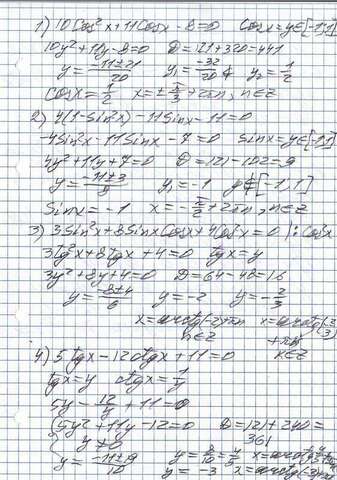 1) 10Cos²x+11Cosx-8=0 Cosx=y∈[-1;1]
10y²+11y-8=0 D=121+320=441
y=(-11±21)/20 y₁=-32/20∉ y₂=1/2
Cosx=1/2 x=±π/3+2πn, n∈Z
2) 4(1-Sin²x)-11Sinx-11=0
-4Sin²x-11Sinx-7=0 Sinx=y∈[-1;1]
4y²+11y+7=0 D=121-102=9
y=(-11±3)/8 y₁=-1 y∉[-1,1]
Sinx=-1 x=-π/2+2πn, n∈Z
3) 3Sin²x+8SinxCosx+4Cos²x=0 |:Cos²x
3tg²x+8tgx+4=0 tgx=y
3y²+8y+4=0 D=64-48=16
y=(-8±4)/6 y=-2 y=-2/3
x=arctg(-2)+πn x=arctg(-2/3)
n∈Z +πn
n∈Z
4) 5tgx-12ctgx+11=0
tgx=y ctgx=1/y
5y-12/y+11=0
{5y²+11y-12=0 D=121+240=
y≠0 361
y=(-11±19)/10 y=8/10=4/5
y=-3